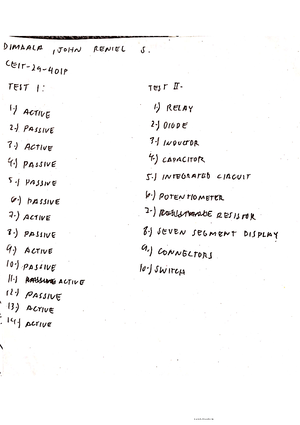 DIMAALA, JOHN RENIEL S.
CEIT-29-401P
TEST I:
1.) ACTIVE
2.) PASSIVE
3.) ACTIVE
4.) PASSIVE
5.) PASSIVE
6.) PASSIVE
7.) ACTIVE
8.) PASSIVE
9.) ACTIVE
10.) PASSIVE
11.) ACTIVE
12.) PASSIVE
13.) ACTIVE
14.) ACTIVE
TEST II.
1.) RELAY
2.) DIODE
3.) INDUCTOR
4.) CAPACITOR
5.) INTEGRATED CIRCUIT
6.) POTENTIOMETER
7.) RESISTOR
8.) SEVEN SEGMENT DISPLAY
9.) CONNECTORS
10.) SWITCH